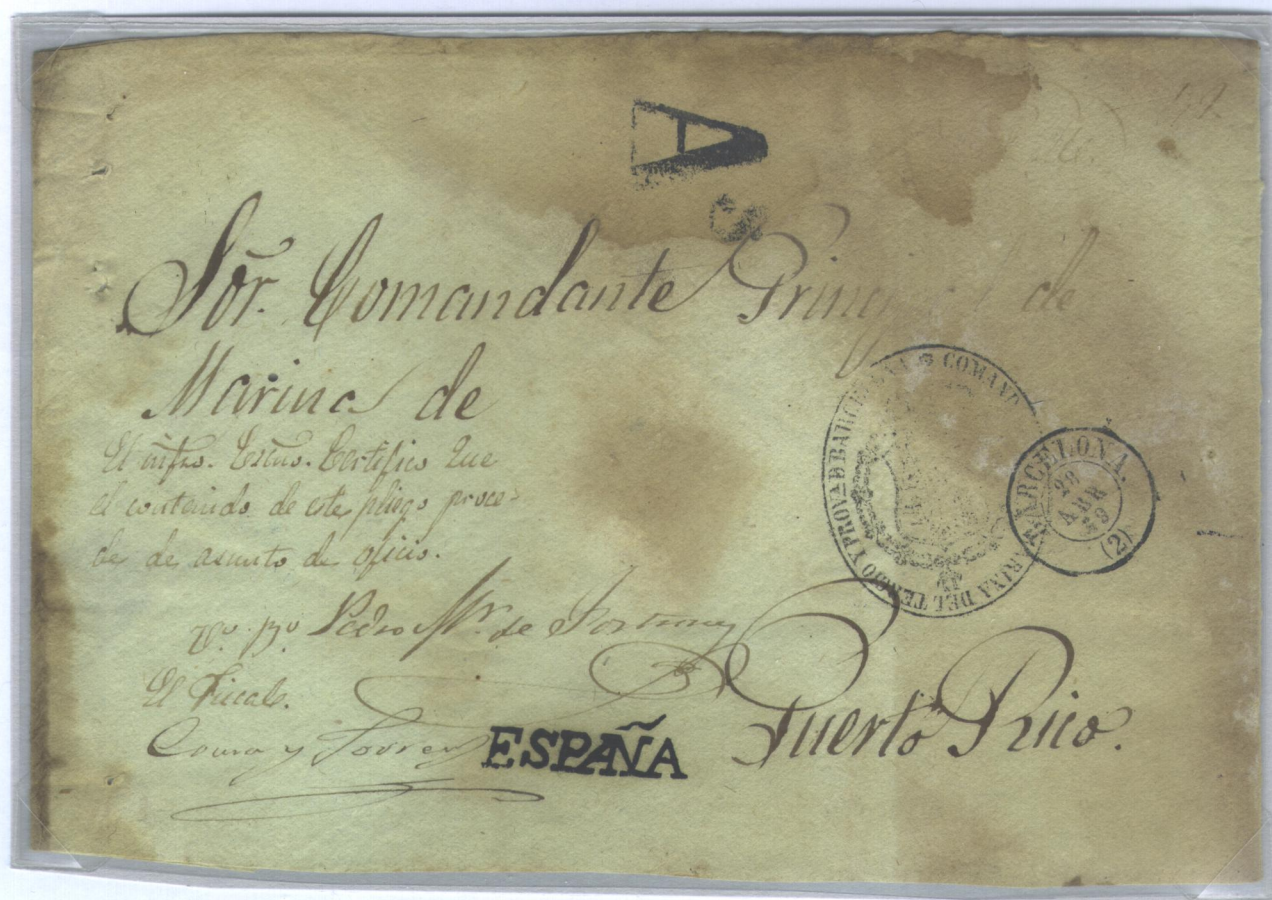 A s
Sõr. Comandante Principal de
Marina de
El infro. Escno. Certifico que
el contenido de este pliego proce-
de de asunto de oficio.
Vº. Bº. Pedro Mr. de Fortuny
El Fiscal.
y Torres
Puerto Rico.
ESPAÑA
COMAND MARINA DEL TERCIO Y PROVA. D BARCELONA
BARCELONA.
28
ABR
59
(2)